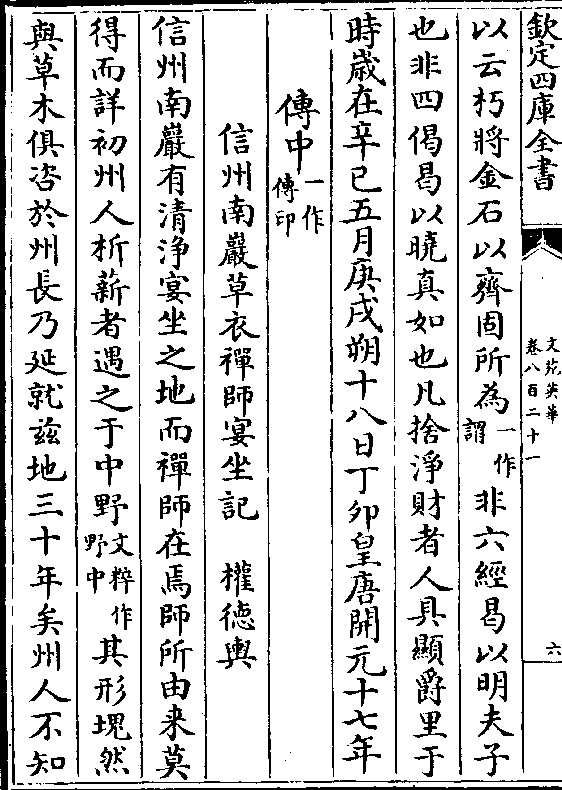 欽定四庫全書
文苑英華
卷八百二十一
六
以云朽將金石以齊固所為一作謂非六經曷以明夫子
也非四偈曷以曉真如也凡捨淨財者人具顯爵里于
時歲在辛已五月庚戌朔十八日丁卯皇唐開元十七年
傳中一作傳印
信州南巖草衣禪師宴坐記 權德輿
信州南巖有清淨宴坐之地而禪師在焉師所由来莫
得而詳初州人析薪者遇之于中野文粹作野中其形塊然
與草木俱咨於州長乃延就兹地三十年矣州人不知